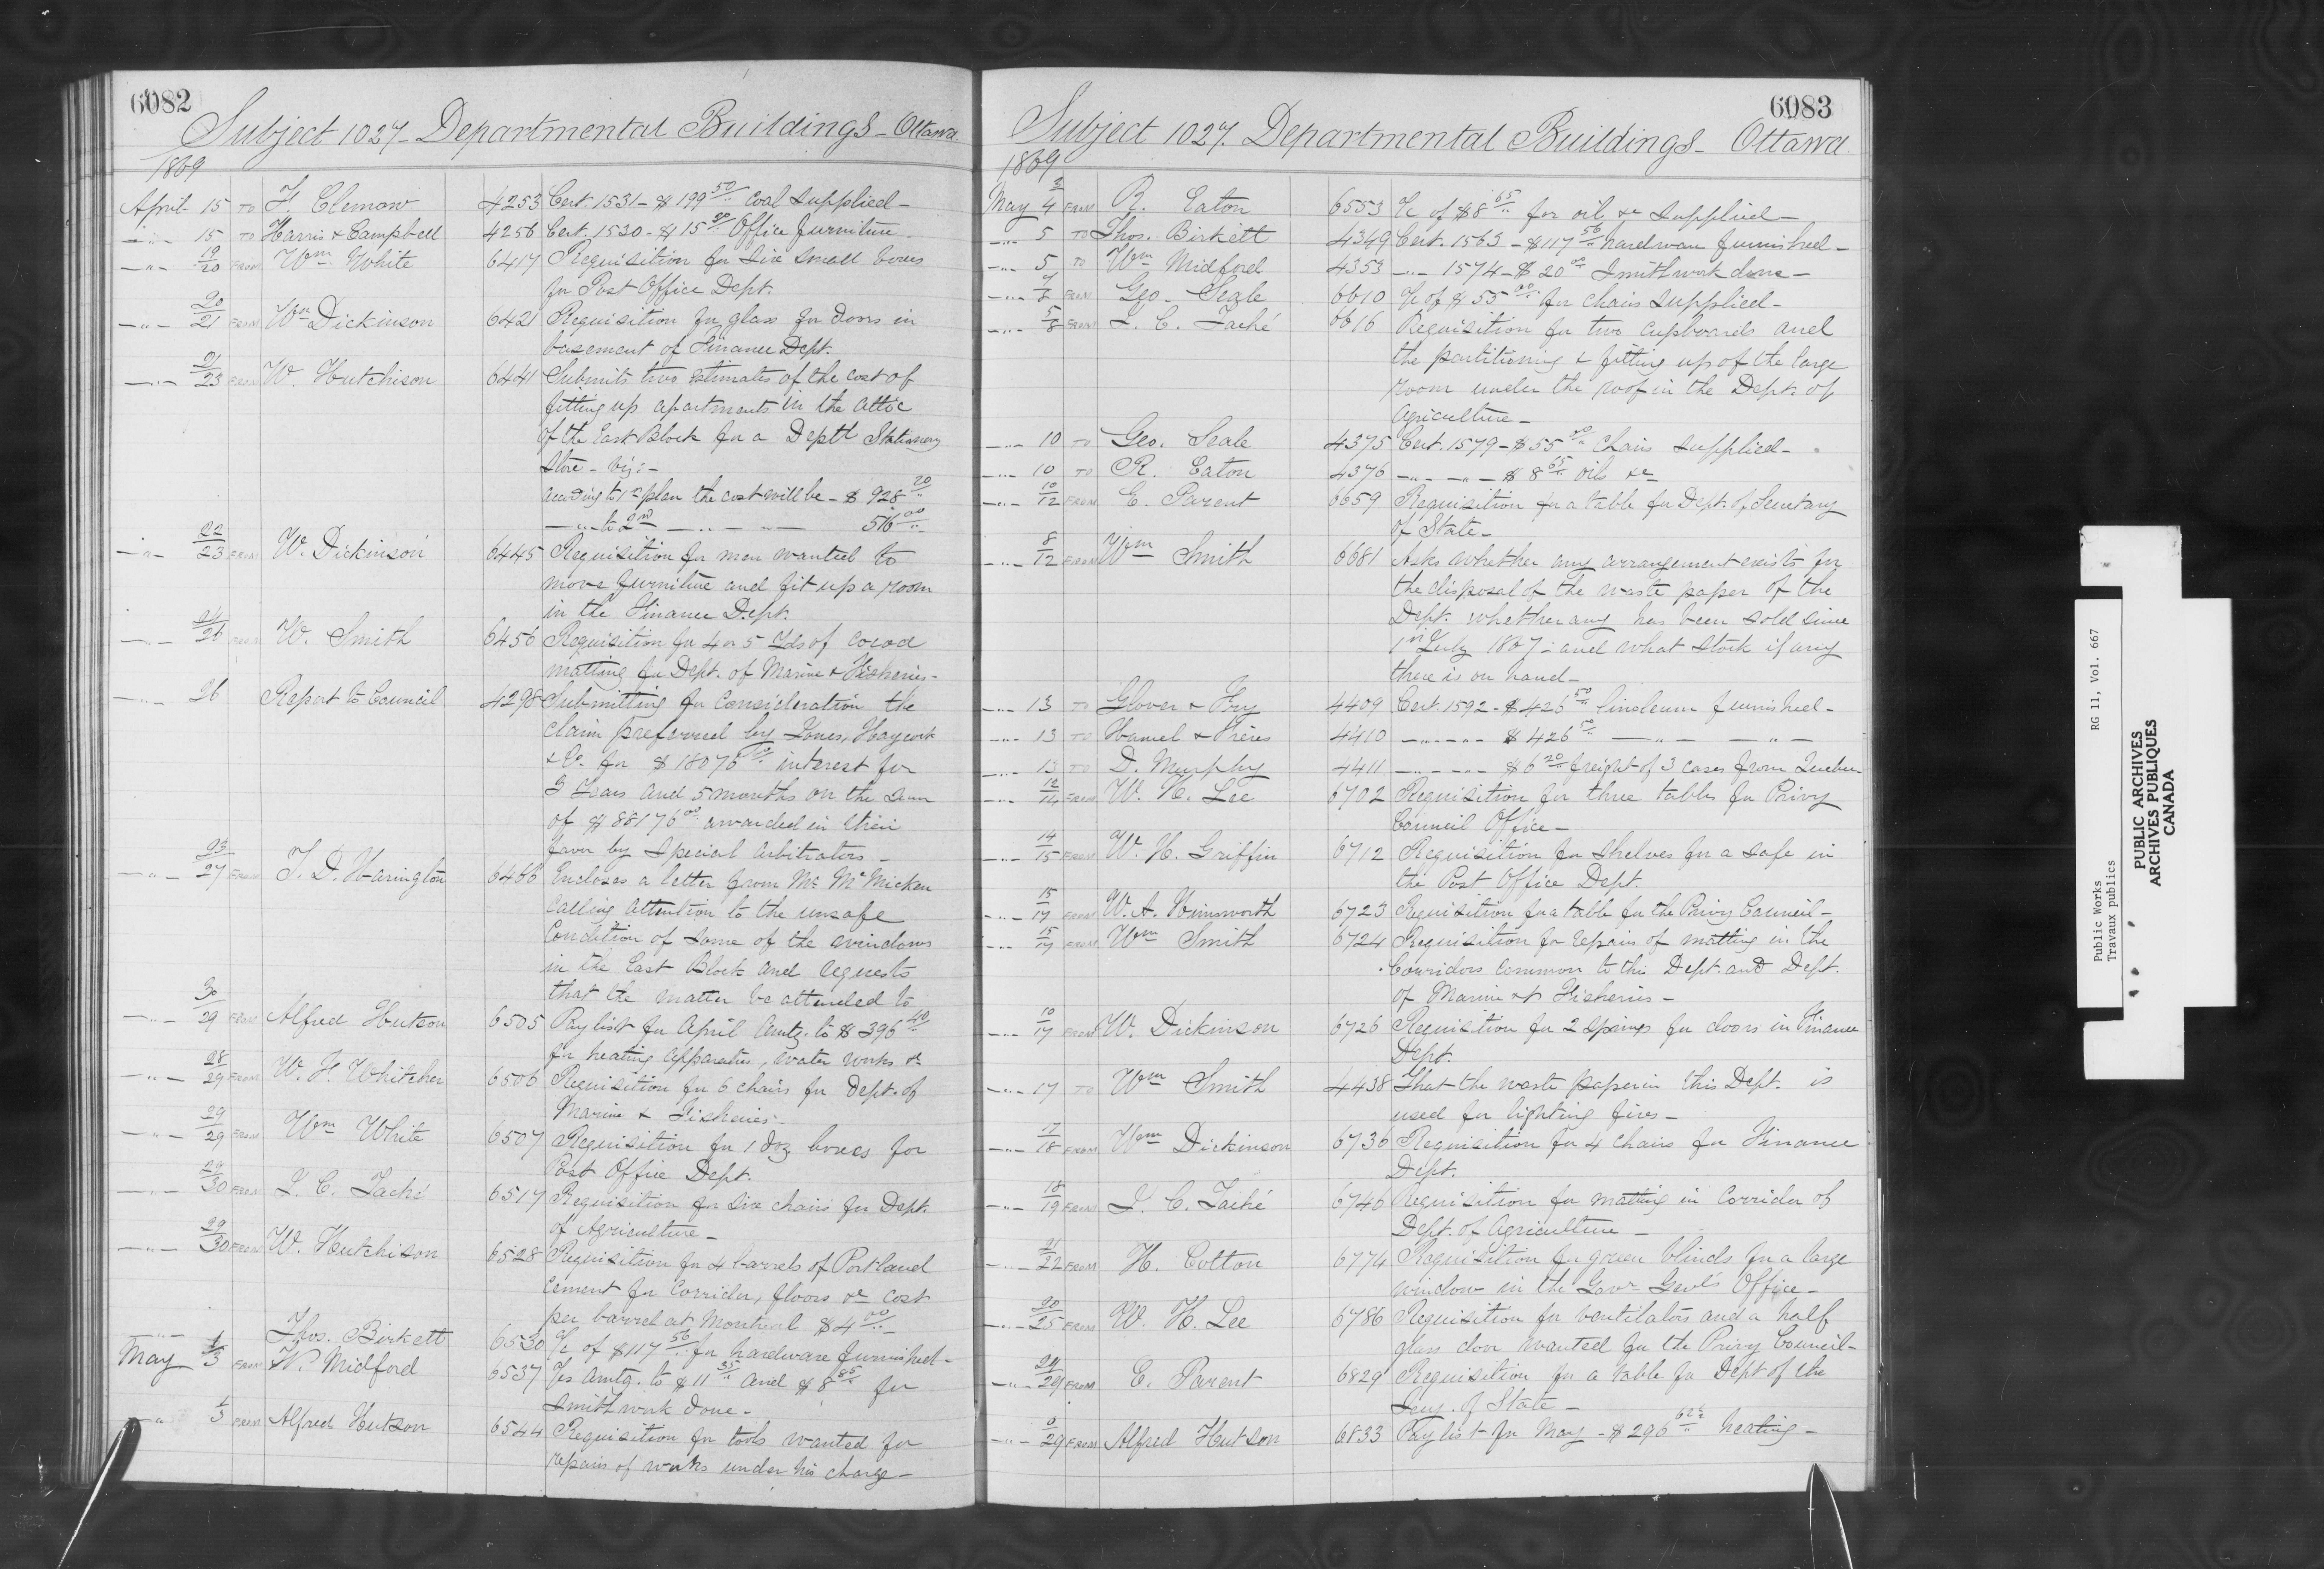 6082
Subject 1027 - Departmental Buildings - Ottawa
1869
April 15 TO F. Clemow 4253 Cert. 1531 - $199 50 Coal supplied -
" 15 TO Harris & Campbell 4256 Cert. 1530 - $15 Office furniture -
" 19/20 FROM Wm White 6417 Requisition for six small boxes
for Post Office Dept.
" 20/21 FROM Wm Dickinson 6421 Requisition for glass for doors in
basement of Finance Dept.
" 21/23 FROM W. Hutchison 6441 Submits two estimates of the cost of
fitting up apartments in the attic
of the East Block for a Deptl Stationery
store - viz: -
according to 1st plan the cost will be - $928 20
" to 2nd " " " 516 00
" 22/23 FROM W. Dickinson 6445 Requisition for men wanted to
move furniture and fit up a room
in the Finance Dept.
" 24/26 FROM W. Smith 6456 Requisition for 4 or 5 Yds of cocoa
matting for Dept. of Marine & Fisheries -
" 26 Report to Council 4298 Submitting for Consideration the
claim preferred by Jones, Haycock
& Co. for $18076 interest for
3 Years and 5 months on the sum
of $88176 00 awarded in their
favor by special arbitrators -
" 23/27 FROM T. D. Harington 6466 Encloses a letter from Mr. McMicken
calling attention to the unsafe
condition of some of the windows
in the East Block and requests
that the matter be attended to
" 30/29 FROM Alfred Hutson 6505 Pay list for April amtg. to $396 40
for heating apparatus, water works &c
" 28/29 FROM W. F. Whitcher 6506 Requisition for 6 chairs for Dept. of
Marine & Fisheries -
" 29/29 FROM Wm White 6507 Requisition for 1 doz boxes for
Post Office Dept.
" 29/30 FROM J. C. Taché 6517 Requisition for six chairs for Dept.
of Agriculture -
" 29/30 FROM W. Hutchison 6528 Requisition for 4 barrels of Portland
cement for Corridor, floors &c cost
per barrel at Montreal $4 00 -
" Thos. Birkett 6530 a/c of $117 56 for hardware furnished -
May 1/3 FROM W. Midford 6537 a/cs amtg. to $11 35 and $8 85 for
smith work done -
" 1/3 FROM Alfred Hutson 6544 Requisition for tools wanted for
repairs of works under his charge -
6083
Subject 1027. Departmental Buildings - Ottawa
1869
May 3/4 FROM R. Eaton 6553 a/c of $8 65 for oil &c supplied -
" 5 TO Thos. Birkett 4349 Cert. 1563 - $117 56 hardware furnished -
" 5 TO Wm Midford 4353 " 1574 - $20 00 Smith work done -
" FROM Geo. Seale 6610 a/c of $55 00 for chairs supplied -
" 5/8 FROM J. C. Taché 6616 Requisition for two cupboards and
the partitioning & fitting up of the large
room under the roof in the Dept. of
Agriculture -
" 10 TO Geo. Seale 4375 Cert. 1579 - $55 00 Chairs supplied -
" 10 TO R. Eaton 4376 " " $8 65 oils &c
" 10/12 FROM E. Parent 6659 Requisition for a table for Dept. of Secretary
of State -
" 8/12 FROM Wm Smith 6681 Asks whether any arrangement exists for
the disposal of the waste paper of the
Dept. whether any has been sold since
1st July 1867: and what stock if any
there is on hand -
" 13 TO Glover & Fry 4409 Cert. 1592 - $426 50 linoleum furnished -
" 13 TO Hamel & Frères 4410 " " $426 50 " "
" 13 TO D. Murphy 4411 " " $6 20 freight of 3 cases from Quebec
" 12/14 FROM W. H. Lee 6702 Requisition for three tables for Privy
Council Office -
" 14/15 FROM W. H. Griffin 6712 Requisition for shelves for a safe in
the Post Office Dept.
" 15/17 FROM W. A. Himsworth 6723 Requisition for a table for the Privy Council -
" 15/17 FROM Wm Smith 6724 Requisition for repairs of matting in the
Corridors common to this Dept. and Dept.
of Marine & Fisheries -
" 10/17 FROM W. Dickinson 6726 Requisition for 2 springs for doors in Finance
Dept.
" 17 TO Wm Smith 4438 That the waste paper in this Dept. is
used for lighting fires -
" 17/18 FROM Wm Dickinson 6736 Requisition for 4 chairs for Finance
Dept.
" 18/19 FROM J. C. Taché 6746 Requisition for matting in Corridor of
Dept. of Agriculture -
" 21/22 FROM H. Cotton 6774 Requisition for green blinds for a large
window in the Govr Genl's Office -
" 20/25 FROM W. H. Lee 6786 Requisition for ventilators and a half
glass door wanted for the Privy Council -
" FROM E. Parent 6829 Requisition for a table for Dept of the
Secy. of State -
" 29 FROM Alfred Hutson 6833 Pay list for May - $296 62½ heating -
Public Works
Travaux publics
RG 11, Vol. 667
PUBLIC ARCHIVES
ARCHIVES PUBLIQUES
CANADA